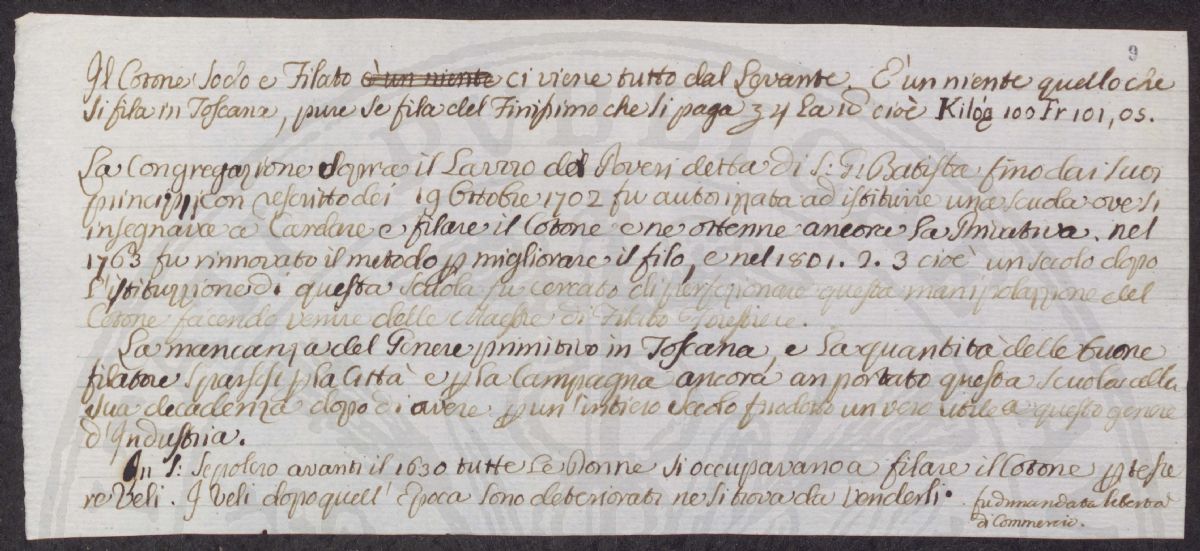 9
Il Cotone Sodo e Filato è un niente ci viene tutto dal Levante. E' un niente quello che
si fila in Toscana, pure se fila del Finissimo che si paga 34 La lb cioè Kilog 100 Fr 101,05.
La Congregazione sopra il Lavoro dei Poveri detta di S: G: Batista fino dai suoi
principii con rescritto dei 19 Ottobre 1702 fu autorizzata ad istituire una scuola ove si
insegnava a Cardare e filare il Cotone e ne ottenne ancora la Privativa. nel
1763 fu rinnovato il metodo p migliorare il filo, e nel 1801. 2. 3 cioè un secolo dopo
l'istituzzione di questa scuola fu cercato di perfezionare questa manipolazzione del
Cotone facendo venire delle Maestre di Filato Forestiere.
La mancanza del Genere primitivo in Toscana, e la quantità delle buone
filatore sparse p la Città e p la Campagna ancora an portato questa scuola alla
sua decadenza dopo di avere p un' intiero secolo prodotto un vero utile a questo genere
d'Industria.
In S: Sepolcro avanti il 1630 tutte le Donne si occupavano a filare il Cotone p tesse
re Veli. I Veli dopo quell' Epoca sono deteriorati ne si trova da venderli.
fu dimandata libertà
di Commercio.